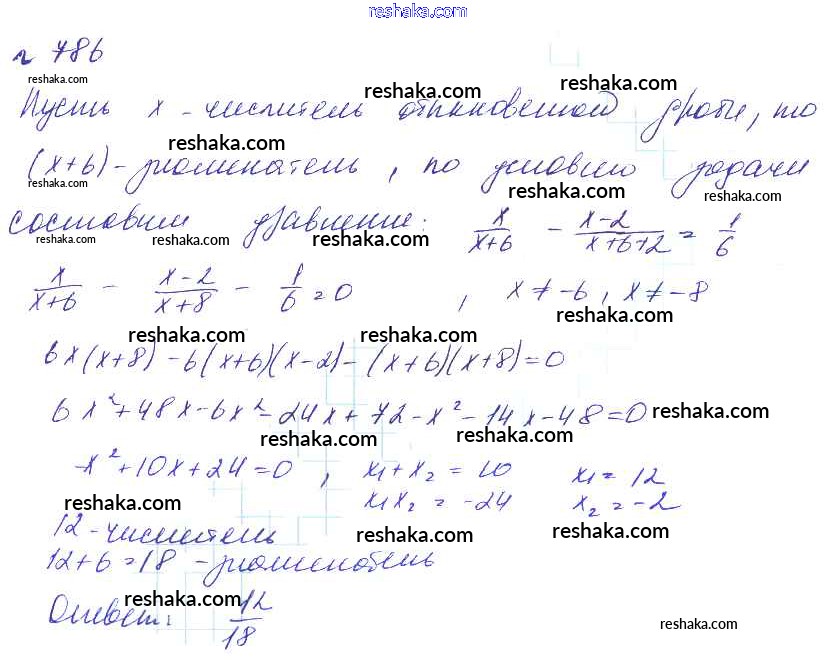 reshaka.com
reshaka.com
№ 786
reshaka.com
reshaka.com
reshaka.com
Пусть x - числитель обыкновенной дроби, то
reshaka.com
(x+6) - знаменатель, по условию задачи
reshaka.com reshaka.com reshaka.com
составим уравнение: x/(x+6) - (x-2)/(x+6+2) = 1/6
reshaka.com reshaka.com reshaka.com
x/(x+6) - (x-2)/(x+8) - 1/6 = 0 , x ≠ -6, x ≠ -8
reshaka.com
reshaka.com reshaka.com
6x(x+8) - 6(x+6)(x-2) - (x+6)(x+8) = 0
6x²+48x-6x²-24x+72-x²-14x-48=0
reshaka.com
reshaka.com reshaka.com
-x²+10x+24=0 , x₁+x₂=10 x₁=12
x₁x₂=-24 x₂=-2
reshaka.com
12 - числитель
reshaka.com reshaka.com
12+6=18 - знаменатель
reshaka.com
Ответ: 12/18
reshaka.com